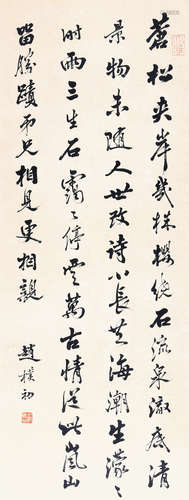 蒼松夾岸幾株櫻繞石流泉澈底清
景物未隨人世改詩心長共海潮生濛々
時雨三生石靄々停雲萬古情從此嵐山
留勝蹟弟兄相見更相親
趙樸初